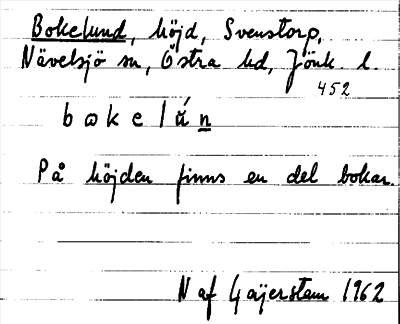 Bokelund, höjd, Svenstorp,
Nävelsjö sn, Östra hd, Jönk. l.
452
b ɷ k e l ú n
På höjden finns en del bokar.
N af Gajerstam 1962